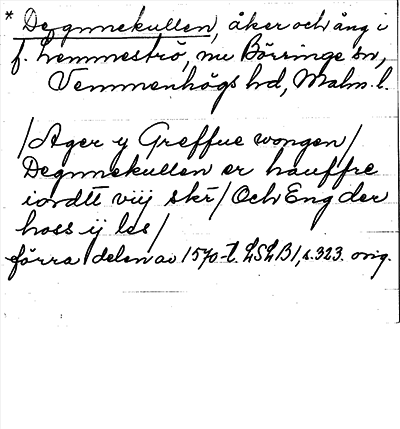 * Degnnekullen, åker och äng i
f. Lemmeströ, nu Börringe sn,
Vemmenhögs hd, Malm. l.
/Ager y Greffue wongen/
Degnnekullen er hauffre
iordtt viij skr/ Och Eng der
hoss ij les/
förra delen av 1570-t. LSLB1, s. 323. orig.